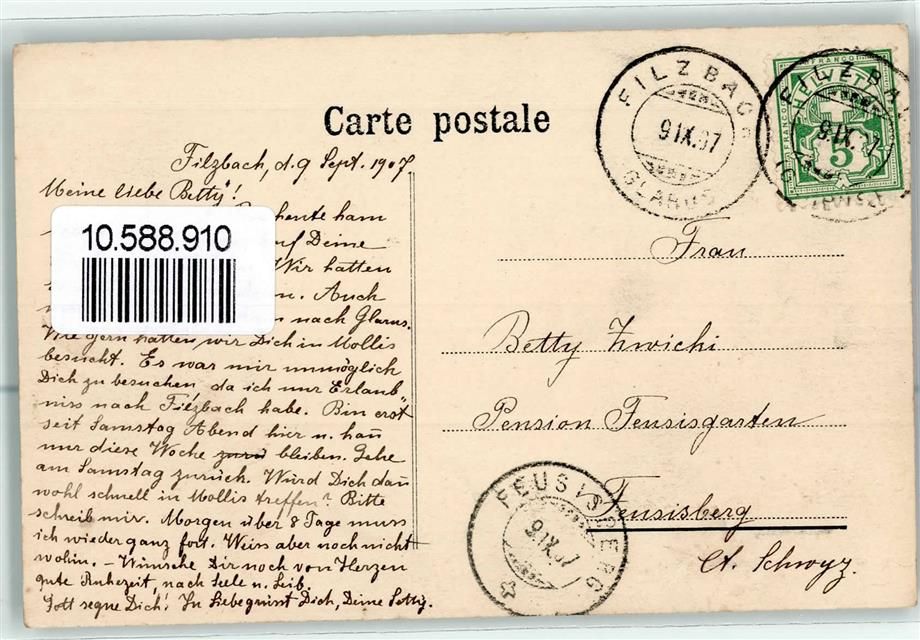 Carte postale
FILZBACH
9 IX. 07
GLARUS
FILZBA
9 IX. 07
FRANCO
HELVETIA
5
Filzbach, d. 9 Sept. 1907.
Meine liebe Betty!
10.588.910
heute kam
auf Deine
Wir hatten
n. Auch
n nach Glarus.
Wie gern hätten wir Dich in Mollis
besucht. Es war mir unmöglich
Dich zu besuchen, da ich nur Erlaub"
niss nach Filzbach habe. Bin erst
seit Samstag Abend hier u. kañ
nur diese Woche bleiben. Gehe
am Samstag zurück. Würd Dich dañ
wohl schnell in Mollis treffen? Bitte
schreib mir. Morgen über 8 Tage muss
ich wieder ganz fort. Weiss aber noch nicht
wohin. - Wünsche dir noch von Herzen
gute Ruhezeit, nach Seele u. Leib.
Gott segne Dich! In Liebe grüsst Dich, Deine
Frau
Betty Zwicki
Pension Feusisgarten
Feusisberg
Ct. Schwyz.
FEUSISBERG
9 IX. 07